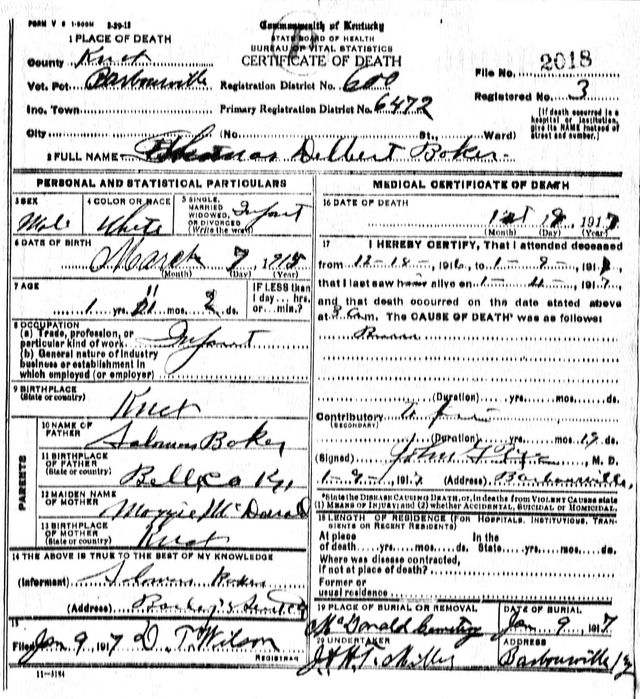 FORM V S 1-500M 2-29-12
Commonwealth of Kentucky
STATE BOARD OF HEALTH
BUREAU OF VITAL STATISTICS
CERTIFICATE OF DEATH
1 PLACE OF DEATH
County Knox
Vot. Pct. Barbourville
Inc. Town
City (No. St., Ward)
Registration District No. 600
Primary Registration District No. 6472
File No. 2018
Registered No. 3
[If death occurred in a
hospital or institution,
give its NAME instead of
street and number.]
2 FULL NAME Thomas Delbert Baker
PERSONAL AND STATISTICAL PARTICULARS
3 SEX Male
4 COLOR OR RACE White
5 SINGLE, MARRIED WIDOWED, OR DIVORCED (Write the word) Infant
6 DATE OF BIRTH
March 7 1915
(Month) (Day) (Year)
7 AGE
1 yrs. mos. 2 ds.
IF LESS than
1 day... hrs.
or... min.?
8 OCCUPATION
(a) Trade, profession, or
particular kind of work. Infant
(b) General nature of industry
business or establishment in
which employed (or employer)
9 BIRTHPLACE
(State or country) Knox
PARENTS
10 NAME OF
FATHER Solomon Baker
11 BIRTHPLACE
OF FATHER
(State or country) Bell Co Ky.
12 MAIDEN NAME
OF MOTHER Maggie McDonald
13 BIRTHPLACE
OF MOTHER
(State or country) Knox
14 THE ABOVE IS TRUE TO THE BEST OF MY KNOWLEDGE
(Informant) Solomon Baker
(Address)
15
Filed Jan 9 1917 D. T. Wilson
REGISTRAR
11-3184
MEDICAL CERTIFICATE OF DEATH
16 DATE OF DEATH
191
(Month) (Day) (Year)
17 I HEREBY CERTIFY, That I attended deceased
from 12-18-, 1916, to 1-9-, 191
that I last saw him alive on 1- , 1917
and that death occurred on the date stated above
at m. The CAUSE OF DEATH* was as follows:
(Duration) yrs. mos. ds.
Contributory
(SECONDARY)
(Duration) yrs. mos. 19 ds.
(Signed) John , M. D.
1-9-, 1917 (Address) Barbourville,
*State the DISEASE CAUSING DEATH, or, in deaths from VIOLENT CAUSES state
(1) MEANS OF INJURY; and (2) whether ACCIDENTAL, SUICIDAL or HOMICIDAL.
18 LENGTH OF RESIDENCE (FOR HOSPITALS, INSTITUTIONS, TRANSIENTS OR RECENT RESIDENTS)
At place of death yrs. mos. ds. In the State yrs. mos. ds.
Where was disease contracted,
if not at place of death?
Former or
usual residence
19 PLACE OF BURIAL OR REMOVAL McDonald Cemetery
DATE OF BURIAL Jan. 9 1917
20 UNDERTAKER J. H. T. Miller
ADDRESS Barbourville Ky